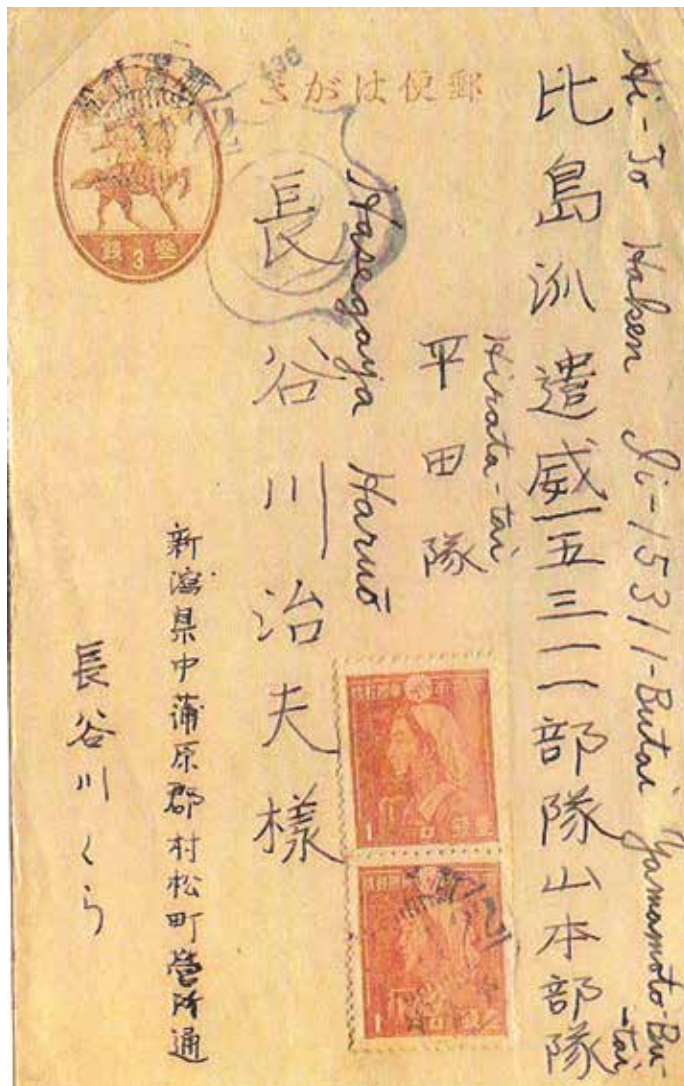 郵便はがき
Hi-To Haken Ii-15311-Butai Yamamoto-Bu-tai
比島派遣威一五三一一部隊山本部隊
Hirata-tai
平田隊
Hasegawa Haruo
長谷川治夫様
新潟県中蒲原郡村松町営所通
長谷川くら
3
1
1